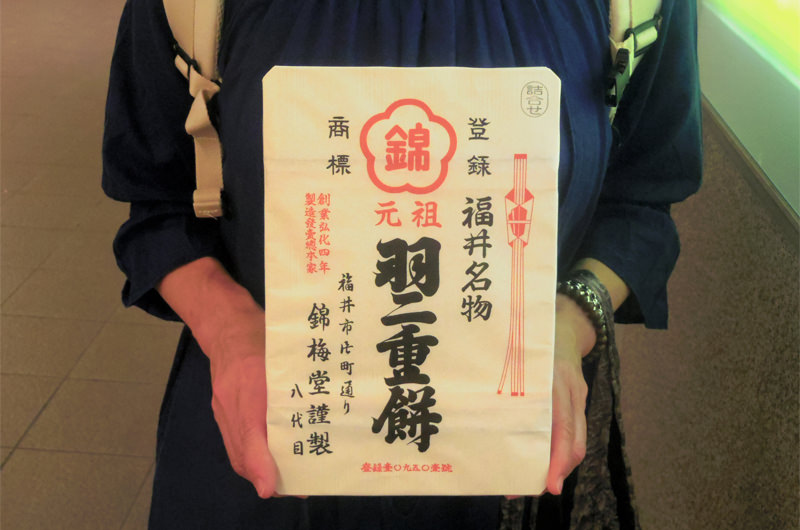 詰合せ
登録
商標
錦
元祖
福井名物
羽二重餅
創業弘化四年
製造發賣總本家
福井市片町通り
錦梅堂謹製
八代目
登録壹〇九五〇壹號